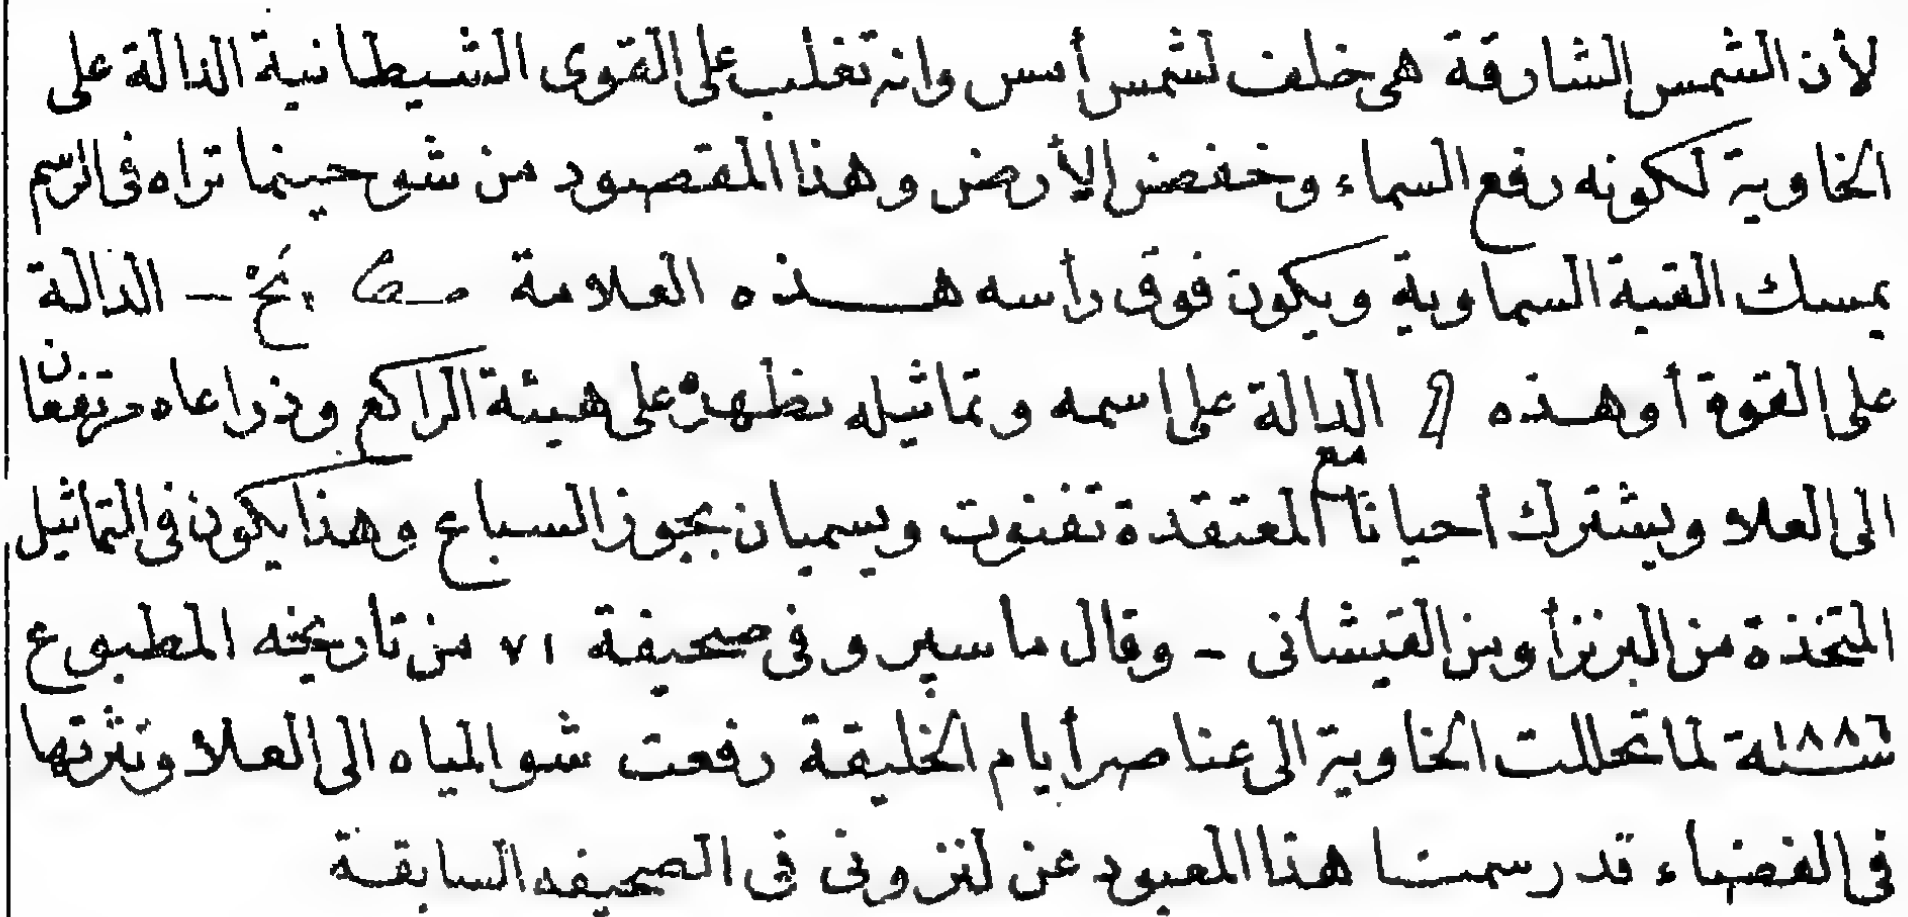 لأن الشمس الشارقة هى خلف لشمس أمس وانه تغلب على القوى الشيطانية الدالة على
الخاوية لكونه رفع السماء وخفض الأرض وهذا المقصود من شو حينما تراه فى الرسم
يمسك القبة السماوية ويكون فوق رأسه هـذه العلامة نخ - الدالة
على القوة أو هـذه الدالة على اسمه وتماثيله تظهره على هيئة الراكع وذراعاه مرتفعان
الى العلا ويشترك احيانا مع المعتقدة تفنوت ويسميان بجوز السباع وهذا يكون فى التماثيل
المتخذة من البرنز أو من القيشانى - وقال ماسپرو فى صحيفة ٧١ من تاريخه المطبوع
سنة ١٨٨٦ لما تحللت الخاوية الى عناصر أيام الخليقة رفعت شو المياه الى العلا ونثرتها
فى الفضاء قد رسمنا هذا المعبود عن لنزونى فى الصحيفه السابقة